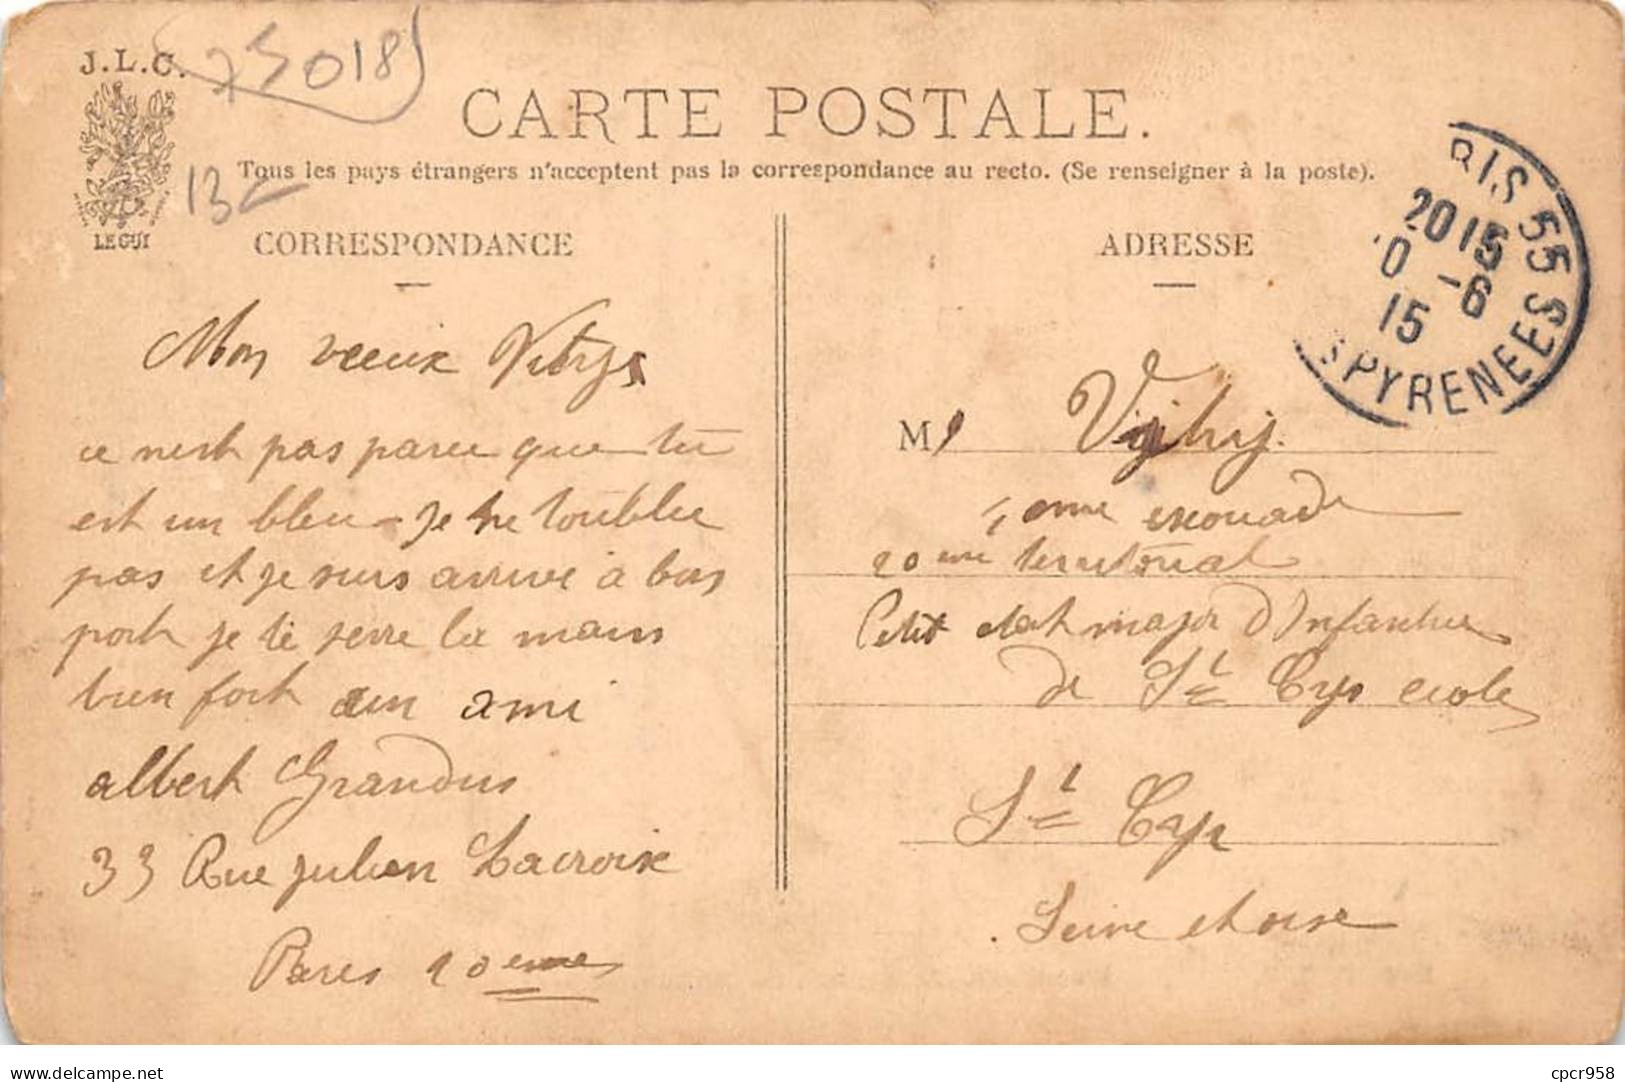 J.L.C.
75018
LE GUI
13
CARTE POSTALE.
Tous les pays étrangers n'acceptent pas la correspondance au recto. (Se renseigner à la poste).
CORRESPONDANCE
Mon vieux
ce nest pas parce que tu
est un bleu - je ne toublie
pas et je suis arrive à bas
port je te serre la main
bien fort un ami
albert Grandus
33 Rue julien Lacroix
Paris 20eme
ADRESSE
RIS 55
2015
0 -6
15
S PYRENEES
M
eme escouade
20eme territorial
Petit etat major d'Infanterie
de St Cyr ecole
St Cyr
Seine et oise
delcampe.net
cpcr958